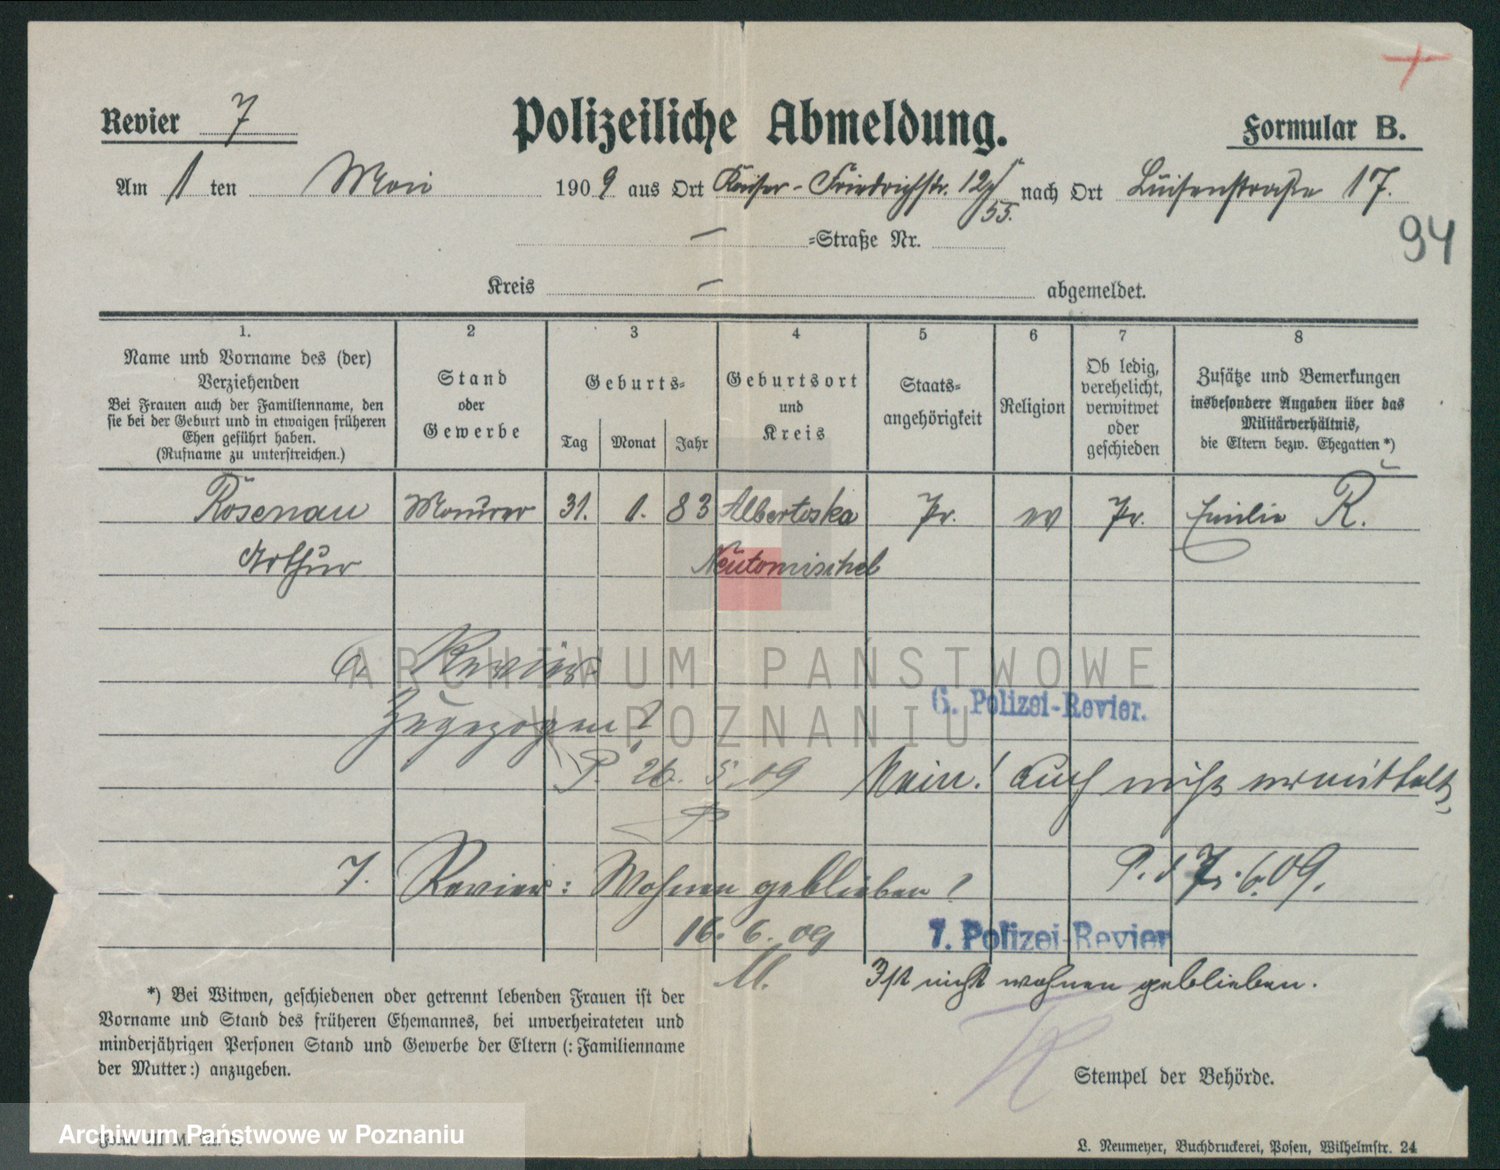 Revier 7
Polizeiliche Abmeldung.
Formular B.
Am 1 ten Mai 1909 aus Ort Kaiser-Friedrichstr. 12 nach Ort Luisenstraße 17.
55.
94
— =Straße Nr.
Kreis — abgemeldet.
1. 2 3 4 5 6 7 8
Name und Vorname des (der) Verziehenden
Bei Frauen auch der Familienname, den
sie bei der Geburt und in etwaigen früheren
Ehen geführt haben.
(Rufname zu unterstreichen.)
Stand
oder
Gewerbe
Geburts=
Tag Monat Jahr
Geburtsort
und
Kreis
Staats=
angehörigkeit
Religion
Ob ledig,
verehelicht,
verwitwet
oder
geschieden
Zusätze und Bemerkungen
insbesondere Angaben über das
Militärverhältnis,
die Eltern bezw. Ehegatten *)
Rosenau Maurer 31. 1. 83 Albertoska Pr. ev Emilie R.
Arthur Neutomischel
6. Revier
Zugezogen?
6. Polizei-Revier.
P. 26. 5. 09 Nein! Auch nicht ermittelt,
P. d 7. 6. 09.
7. Revier: Wohnen geblieben?
16. 6. 09
7. Polizei-Revier
Ist nicht wohnen geblieben.
*) Bei Witwen, geschiedenen oder getrennt lebenden Frauen ist der
Vorname und Stand des früheren Ehemannes, bei unverheirateten und
minderjährigen Personen Stand und Gewerbe der Eltern (: Familienname
der Mutter:) anzugeben.
Stempel der Behörde.
L. Neumeyer, Buchdruckerei, Posen, Wilhelmstr. 24
ARCHIWUM PAŃSTWOWE
W POZNANIU
Archiwum Państwowe w Poznaniu